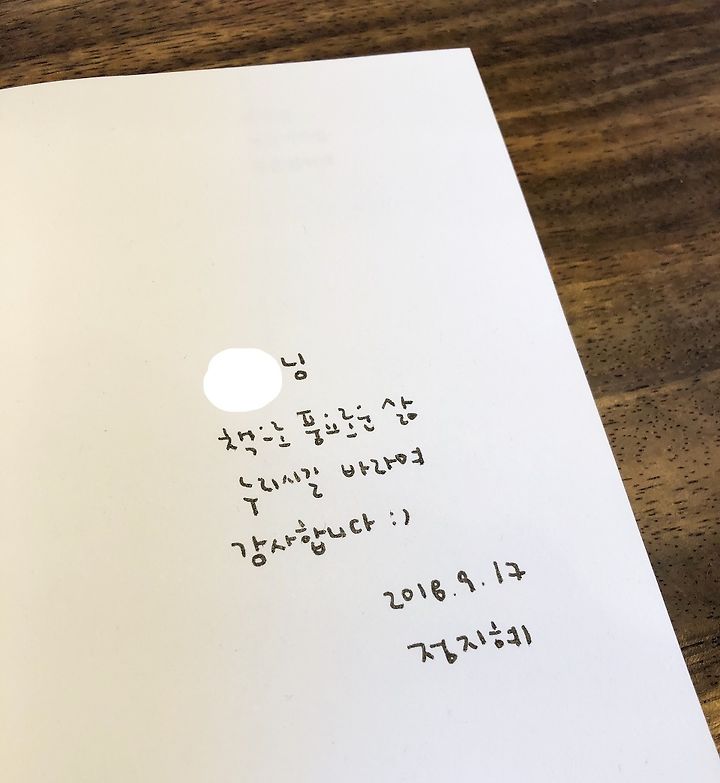 님
책으로 풍요로운 삶
누리시길 바라며
감사합니다 :)
2018.9.17
정지혜